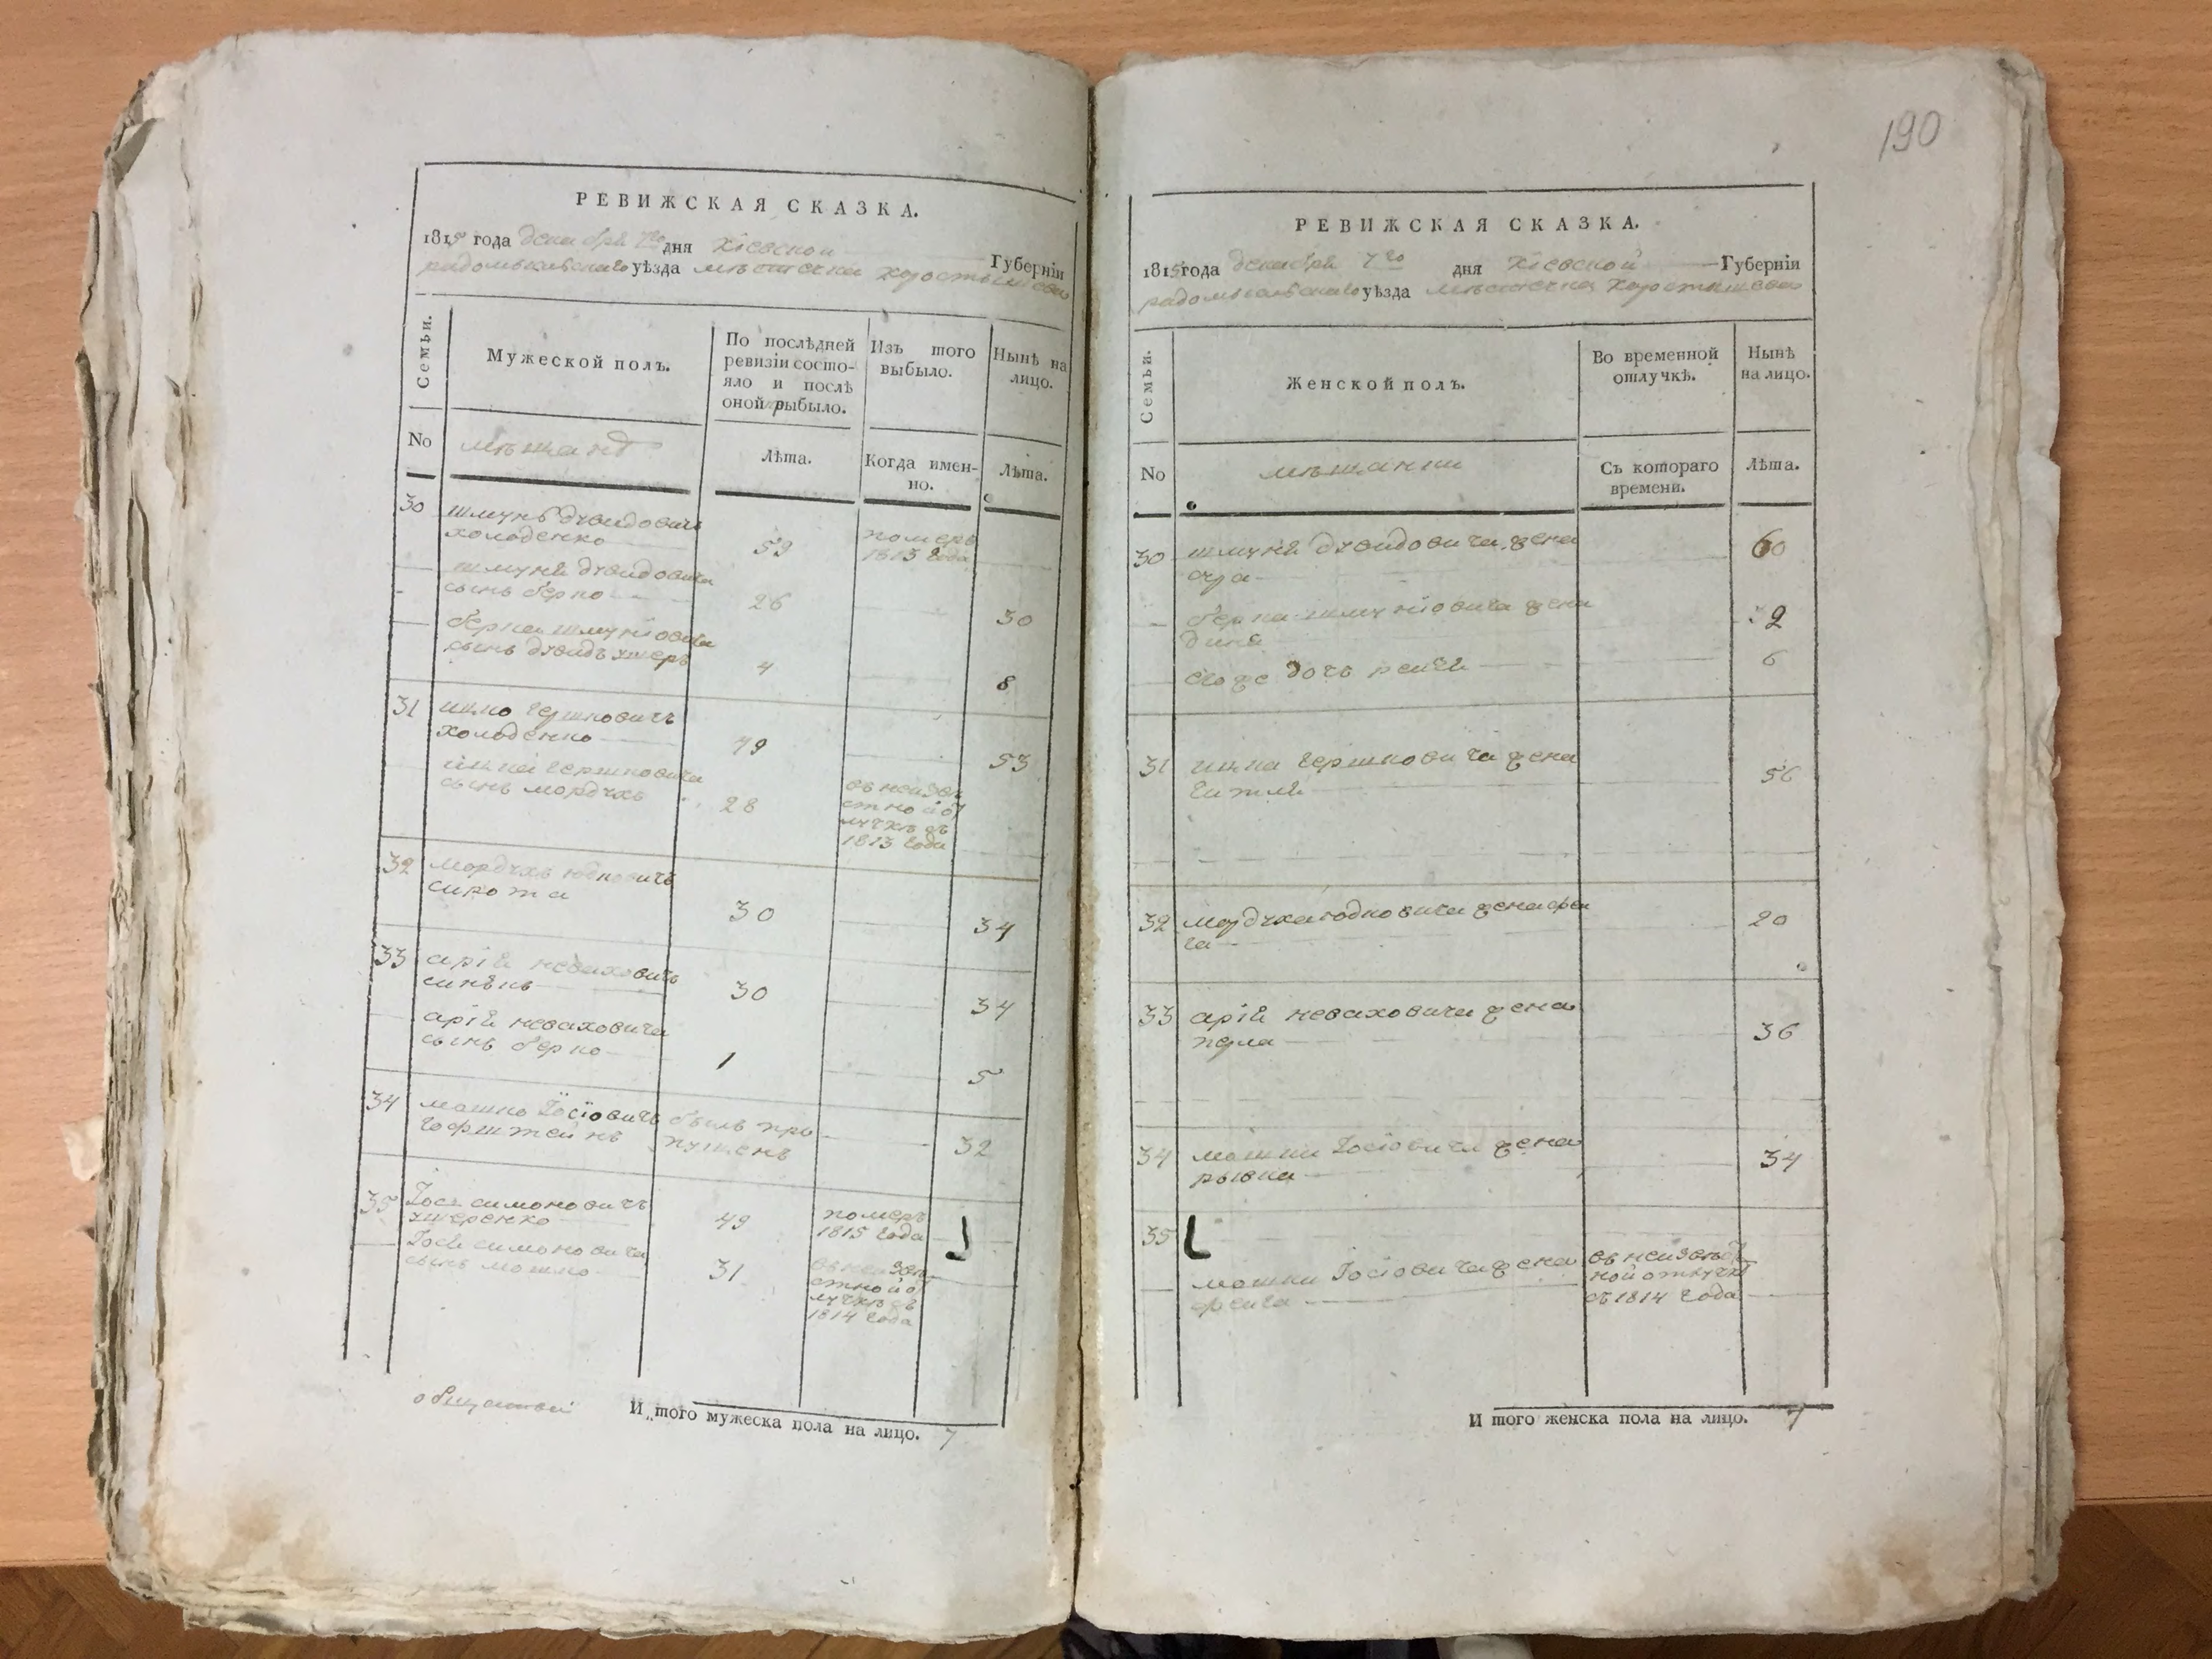 РЕВИЖСКАЯ СКАЗКА.
1815 года декабря 7го дня Кіевской Губерніи
радомысльскаго уѣзда мѣстечка коростышева
Семьи.
Мужеской полъ.
По послѣдней
ревизіи состо-
яло и послѣ
оной прибыло.
Изъ того
выбыло.
Нынѣ на
лицо.
No
мѣщанъ
Лѣта.
Когда имен-
но.
Лѣта.
30 шмунь дувидовичъ
холоденко 59 померъ
1813 года
шмуня дувидовича
сынъ берко 26 30
берка шмуніовича
сынъ дувидъ ушеръ 4 8
31 ицко гершковичъ
холоденко 49 53
ицка гершковича
сынъ мордухъ 28 въ неизве
стной от
лучкѣ съ
1813 года
32 мордухъ юдковичъ
сирота 30 34
33 арій неваховичъ
30 34
арій неваховича
сынъ берко 1 5
34 мошко Іосіовичъ былъ про
гофштейнъ пущенъ 32
35 Іось симоновичъ
ушеренко 49 померъ
1815 года
Іося симоновича
сынъ мошко 31 въ неизве
стной от
лучкѣ съ
1814 года
И того мужеска пола на лицо. 7
190
РЕВИЖСКАЯ СКАЗКА.
1815 года декабря 7го дня Кіевской Губерніи
радомысльскаго уѣзда мѣстечка коростышева
Семьи.
Женской полъ.
Во временной
отлучкѣ.
Нынѣ
на лицо.
No
мѣщанки
Съ котораго
времени.
Лѣта.
30 шмуня дувидовича жена 60
берка шмуніовича жена 32
дина
его же дочь рейзя 6
31 ицка гершковича жена 56
гитля
32 мордуха юдковича жена фей 20
га
33 арій неваховича жена 36
перла
34 мошки Іосіовича жена 34
рывка
35
мошки Іосіовича жена въ неизвѣст
фейга ной отлучкѣ
съ 1814 года
И того женска пола на лицо. 7